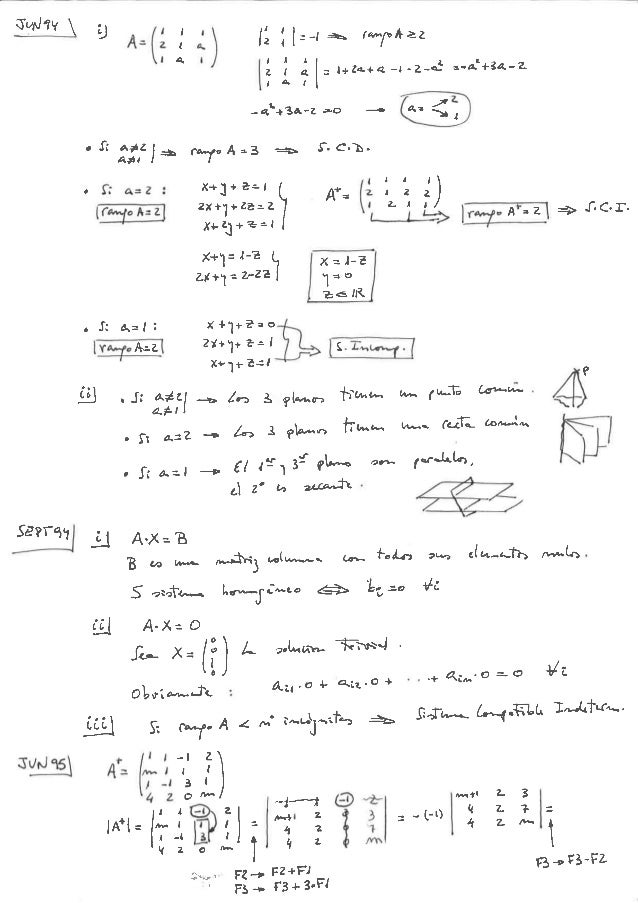 JUN 94 i) A = ( 1 1 1 / 2 1 a / 1 a 1 ) | 1 1 / 2 1 | = -1 ⇒ rango A ≥ 2
| 1 1 1 / 2 1 a / 1 a 1 | = 1+2a+a-1-2-a² = -a²+3a-2
-a²+3a-2 = 0 → a = 2 1
• Si a≠2 a≠1 | ⇒ rango A = 3 ⇒ S.C.D.
• Si a=2 : x+y+z=1 A* = ( 1 1 1 1 / 2 1 2 2 / 1 2 1 1 )
rango A=2 2x+y+2z=2 rango A*=2 ⇒ S.C.I.
x+2y+z=1
x+y=1-z x=1-z
2x+y=2-2z y=0
z∈ℝ
• Si a=1 : x+y+z=0
rango A=2 2x+y+z=1 S. Incomp.
x+y+z=1
ii) • Si a≠2 a≠1 | → Los 3 planos tienen un punto común. P
• Si a=2 → Los 3 planos tienen una recta común
• Si a=1 → El 1er y 3er plano son paralelos,
el 2º es secante.
SEPT 94 i) A·X = B
B es una matriz columna con todos sus elementos nulos.
S sistema homogéneo ⇔ bi = 0 ∀i
ii) A·X = 0
Sea X = ( 0 0 ⋮ 0 ) la solución trivial.
Obviamente : ai1·0 + ai2·0 + ··· + ain·0 = 0 ∀i
iii) Si rango A < nº incógnitas ⇒ Sistema Compatible Indeterm.
JUN 95 A* = ( 1 1 -1 2 / m 1 1 1 / 1 -1 3 1 / 4 2 0 m )
|A*| = | 1 1 -1 2 / m 1 1 1 / 1 -1 3 1 / 4 2 0 m | = | 1 1 -1 2 / m+1 2 0 3 / 4 2 0 7 / 4 2 0 m | = -(-1) | m+1 2 3 / 4 2 7 / 4 2 m | =
F2 → F2+F1
F3 → F3+3·F1
F3 → F3-F2